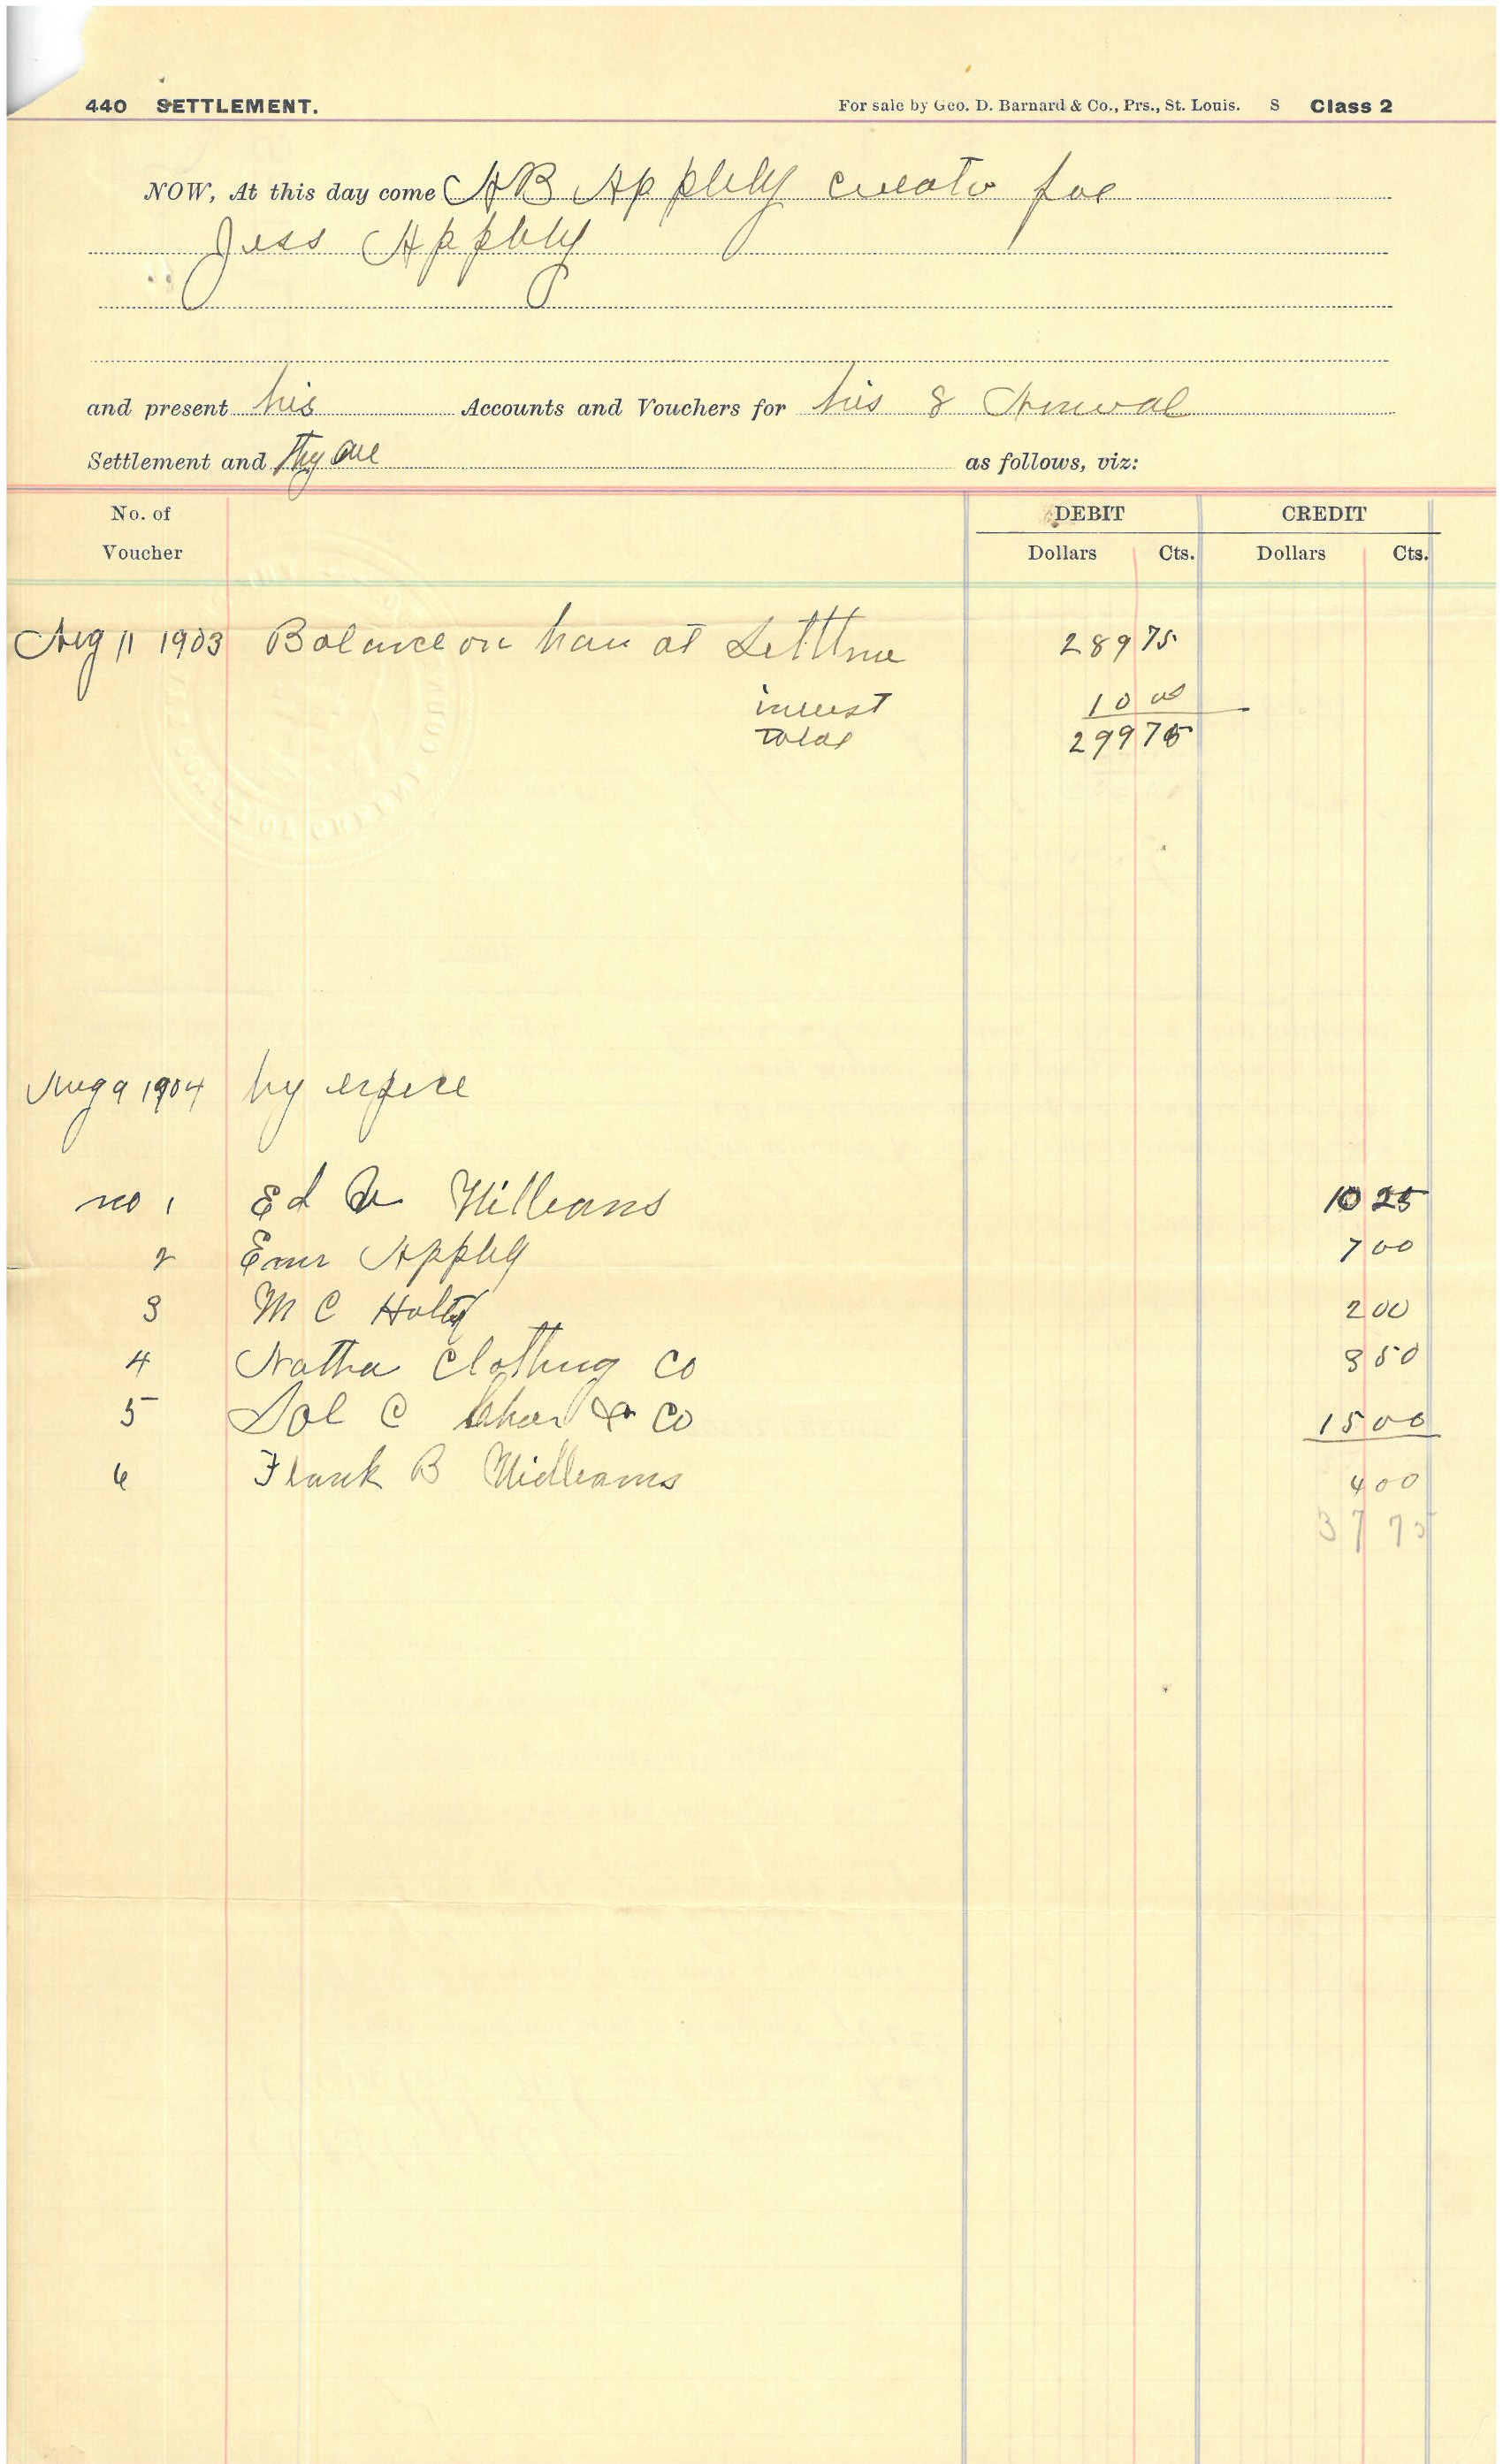 440 SETTLEMENT. For sale by Geo. D. Barnard & Co., Prs., St. Louis. S Class 2
NOW, At this day come A B Appleby for
Jess Appleby
and present his Accounts and Vouchers for his 8 Annual
Settlement and they are as follows, viz:
No. of Voucher DEBIT CREDIT
Dollars Cts. Dollars Cts.
Aug 11 1903 Balance on han at 289 75
interest 10 00
Total 299 75
Aug 9 1904 by
no 1 Ed Williams 10 25
2 Appleby 7 00
3 M C Holty 2 00
4 Natha Clothing Co 3 50
5 Sol C & Co 15 00
6 Frank B Williams 4 00
37 75